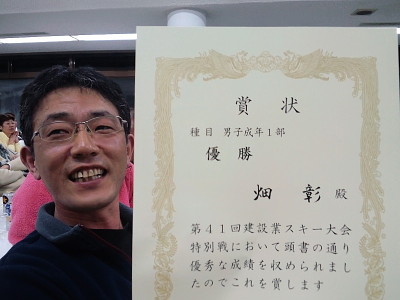 賞状
種目 男子成年1部
優勝
畑 彰 殿
第41回建設業スキー大会
特別戦において頭書の通り
優秀な成績を収められまし
たのでこれを賞します